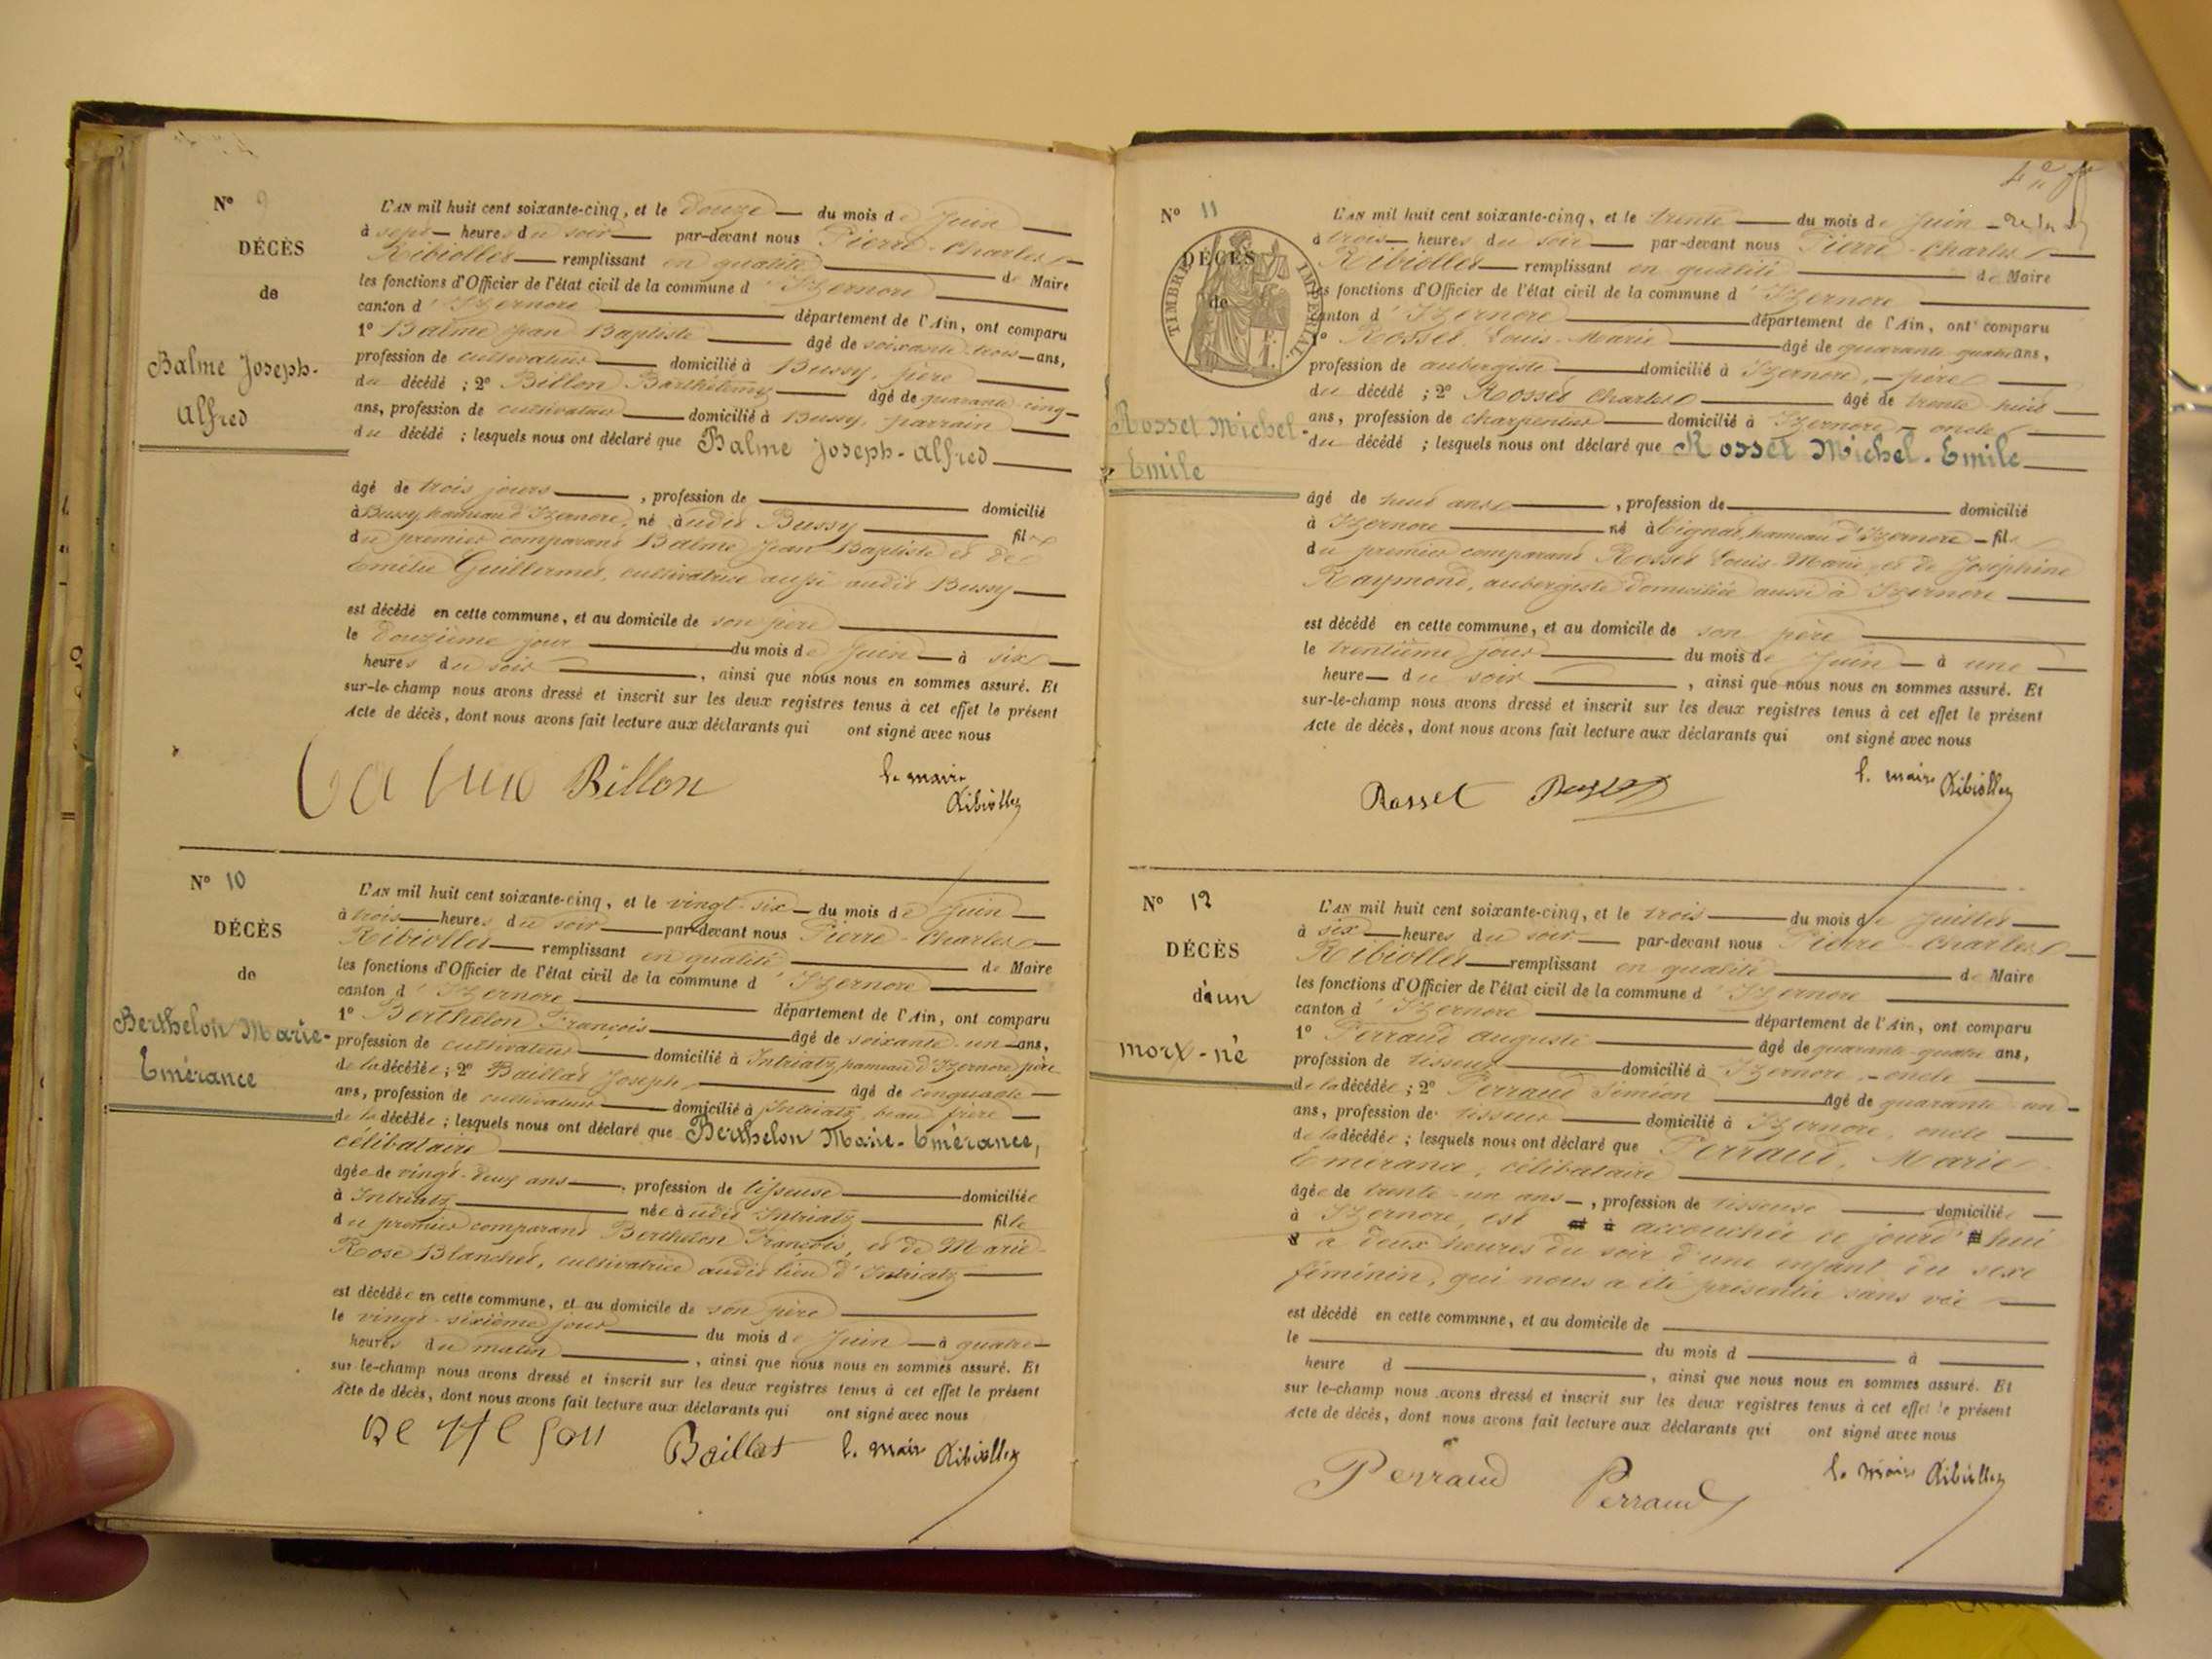 N° 9
DÉCÈS
de
Balme Joseph-
Alfred
L'AN mil huit cent soixante-cinq, et le douze du mois de Juin
à sept heures du soir par-devant nous Pierre-Charles
Ribiollet remplissant en qualité de Maire
les fonctions d'Officier de l'état civil de la commune d'Izernore
canton d'Izernore département de l'Ain, ont comparu
1° Balme Jean Baptiste âgé de soixante-trois ans,
profession de cultivateur domicilié à Bussy, père
du décédé ; 2° Billon Barthélemy âgé de quarante-cinq
ans, profession de cultivateur domicilié à Bussy, parrain
du décédé ; lesquels nous ont déclaré que Balme Joseph-Alfred
âgé de trois jours, profession de domicilié
à Bussy, hameau d'Izernore, né audit Bussy fils
du premier comparant Balme Jean Baptiste et de
Emélie Guillermet, cultivatrice aussi audit Bussy
est décédé en cette commune, et au domicile de son père
le douzième jour du mois de Juin à six
heures du soir, ainsi que nous nous en sommes assuré. Et
sur-le-champ nous avons dressé et inscrit sur les deux registres tenus à cet effet le présent
Acte de décès, dont nous avons fait lecture aux déclarants qui ont signé avec nous
Balme Billon le maire
Ribiollet
N° 10
DÉCÈS
de
Berthelon Marie-
Emérance
L'AN mil huit cent soixante-cinq, et le vingt-six du mois de Juin
à trois heures du soir par-devant nous Pierre-Charles
Ribiollet remplissant en qualité de Maire
les fonctions d'Officier de l'état civil de la commune d'Izernore
canton d'Izernore département de l'Ain, ont comparu
1° Berthelon François âgé de soixante-un ans,
profession de cultivateur domicilié à Intriatz hameau d'Izernore, père
de la décédée ; 2° Baillat Joseph, âgé de cinquante
ans, profession de cultivateur domicilié à Intriatz, beau frère
de la décédée ; lesquels nous ont déclaré que Berthelon Marie-Emérance,
célibataire
âgée de vingt-deux ans, profession de tisseuse domiciliée
à Intriatz née audit Intriatz fille
du premier comparant Berthelon François, et de Marie-
Rose Blanchet, cultivatrice audit lieu d'Intriatz
est décédée en cette commune, et au domicile de son père
le vingt-sixième jour du mois de Juin à quatre
heures du matin, ainsi que nous nous en sommes assuré. Et
sur-le-champ nous avons dressé et inscrit sur les deux registres tenus à cet effet le présent
Acte de décès, dont nous avons fait lecture aux déclarants qui ont signé avec nous
Baillat le maire Ribiollet
4e
N° 11
DÉCÈS
de
TIMBRE IMPÉRIAL
Rosset Michel-
Emile
L'AN mil huit cent soixante-cinq, et le trente du mois de Juin
à trois heures du soir par-devant nous Pierre-Charles
Ribiollet remplissant en qualité de Maire
les fonctions d'Officier de l'état civil de la commune d'Izernore
canton d'Izernore département de l'Ain, ont comparu
1° Rosset Louis-Marie âgé de quarante-quatre ans,
profession de aubergiste domicilié à Izernore, père
du décédé ; 2° Rosset Charles âgé de trente-huit
ans, profession de charpentier domicilié à Izernore, oncle
du décédé ; lesquels nous ont déclaré que Rosset Michel-Emile
âgé de huit ans, profession de domicilié
à Izernore né à Tignat, hameau d'Izernore fils
du premier comparant Rosset Louis-Marie, et de Joséphine
Raymond, aubergiste domiciliée aussi à Izernore
est décédé en cette commune, et au domicile de son père
le trentième jour du mois de Juin à une
heure du soir, ainsi que nous nous en sommes assuré. Et
sur-le-champ nous avons dressé et inscrit sur les deux registres tenus à cet effet le présent
Acte de décès, dont nous avons fait lecture aux déclarants qui ont signé avec nous
Rosset Rosset le maire Ribiollet
N° 12
DÉCÈS
d'un
mort-né
L'AN mil huit cent soixante-cinq, et le trois du mois de Juillet
à six heures du soir par-devant nous Pierre-Charles
Ribiollet remplissant en qualité de Maire
les fonctions d'Officier de l'état civil de la commune d'Izernore
canton d'Izernore département de l'Ain, ont comparu
1° Perraud Auguste âgé de quarante-quatre ans,
profession de tisseur domicilié à Izernore, oncle
de la décédée ; 2° Perraud Siméon âgé de quarante-un
ans, profession de tisseur domicilié à Izernore, oncle
de la décédée ; lesquels nous ont déclaré que Perraud, Marie
Emérance, célibataire
âgée de trente-un ans, profession de tisseuse domiciliée
à Izernore, est accouchée ce jourd'hui
à deux heures du soir d'une enfant du sexe
féminin, qui nous a été présentée sans vie
est décédé en cette commune, et au domicile de
le du mois d à
heure d, ainsi que nous nous en sommes assuré. Et
sur le-champ nous avons dressé et inscrit sur les deux registres tenus à cet effet le présent
Acte de décès, dont nous avons fait lecture aux déclarants qui ont signé avec nous
Perraud Perraud le maire Ribiollet